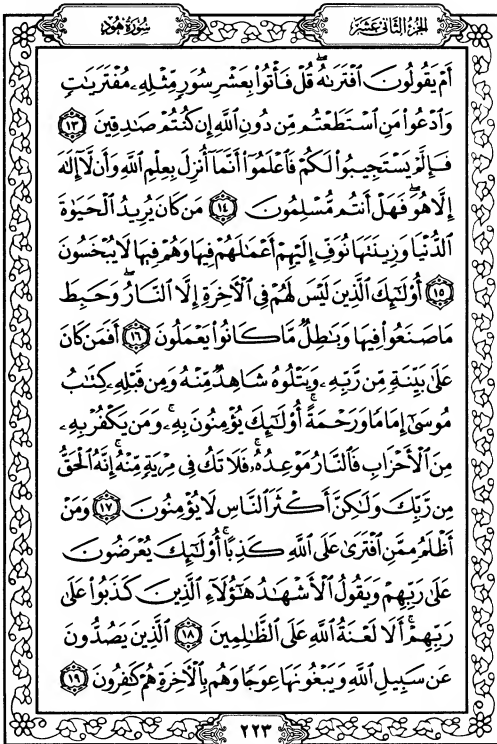 الجزء الثاني عشر
سورة هود
أَمْ يَقُولُونَ ٱفْتَرَىٰهُ ۖ قُلْ فَأْتُوا۟ بِعَشْرِ سُوَرٍ مِّثْلِهِۦ مُفْتَرَيَـٰتٍ
وَٱدْعُوا۟ مَنِ ٱسْتَطَعْتُم مِّن دُونِ ٱللَّهِ إِن كُنتُمْ صَـٰدِقِينَ ١٣
فَإِلَّمْ يَسْتَجِيبُوا۟ لَكُمْ فَٱعْلَمُوٓا۟ أَنَّمَآ أُنزِلَ بِعِلْمِ ٱللَّهِ وَأَن لَّآ إِلَـٰهَ
إِلَّا هُوَ ۖ فَهَلْ أَنتُم مُّسْلِمُونَ ١٤ مَن كَانَ يُرِيدُ ٱلْحَيَوٰةَ
ٱلدُّنْيَا وَزِينَتَهَا نُوَفِّ إِلَيْهِمْ أَعْمَـٰلَهُمْ فِيهَا وَهُمْ فِيهَا لَا يُبْخَسُونَ
١٥ أُو۟لَـٰٓئِكَ ٱلَّذِينَ لَيْسَ لَهُمْ فِى ٱلْـَٔاخِرَةِ إِلَّا ٱلنَّارُ ۖ وَحَبِطَ
مَا صَنَعُوا۟ فِيهَا وَبَـٰطِلٌ مَّا كَانُوا۟ يَعْمَلُونَ ١٦ أَفَمَن كَانَ
عَلَىٰ بَيِّنَةٍ مِّن رَّبِّهِۦ وَيَتْلُوهُ شَاهِدٌ مِّنْهُ وَمِن قَبْلِهِۦ كِتَـٰبُ
مُوسَىٰٓ إِمَامًا وَرَحْمَةً ۚ أُو۟لَـٰٓئِكَ يُؤْمِنُونَ بِهِۦ ۚ وَمَن يَكْفُرْ بِهِۦ
مِنَ ٱلْأَحْزَابِ فَٱلنَّارُ مَوْعِدُهُۥ ۚ فَلَا تَكُ فِى مِرْيَةٍ مِّنْهُ ۚ إِنَّهُ ٱلْحَقُّ
مِن رَّبِّكَ وَلَـٰكِنَّ أَكْثَرَ ٱلنَّاسِ لَا يُؤْمِنُونَ ١٧ وَمَنْ
أَظْلَمُ مِمَّنِ ٱفْتَرَىٰ عَلَى ٱللَّهِ كَذِبًا ۚ أُو۟لَـٰٓئِكَ يُعْرَضُونَ
عَلَىٰ رَبِّهِمْ وَيَقُولُ ٱلْأَشْهَـٰدُ هَـٰٓؤُلَآءِ ٱلَّذِينَ كَذَبُوا۟ عَلَىٰ
رَبِّهِمْ ۚ أَلَا لَعْنَةُ ٱللَّهِ عَلَى ٱلظَّـٰلِمِينَ ١٨ ٱلَّذِينَ يَصُدُّونَ
عَن سَبِيلِ ٱللَّهِ وَيَبْغُونَهَا عِوَجًا وَهُم بِٱلْـَٔاخِرَةِ هُمْ كَـٰفِرُونَ ١٩
٢٢٣